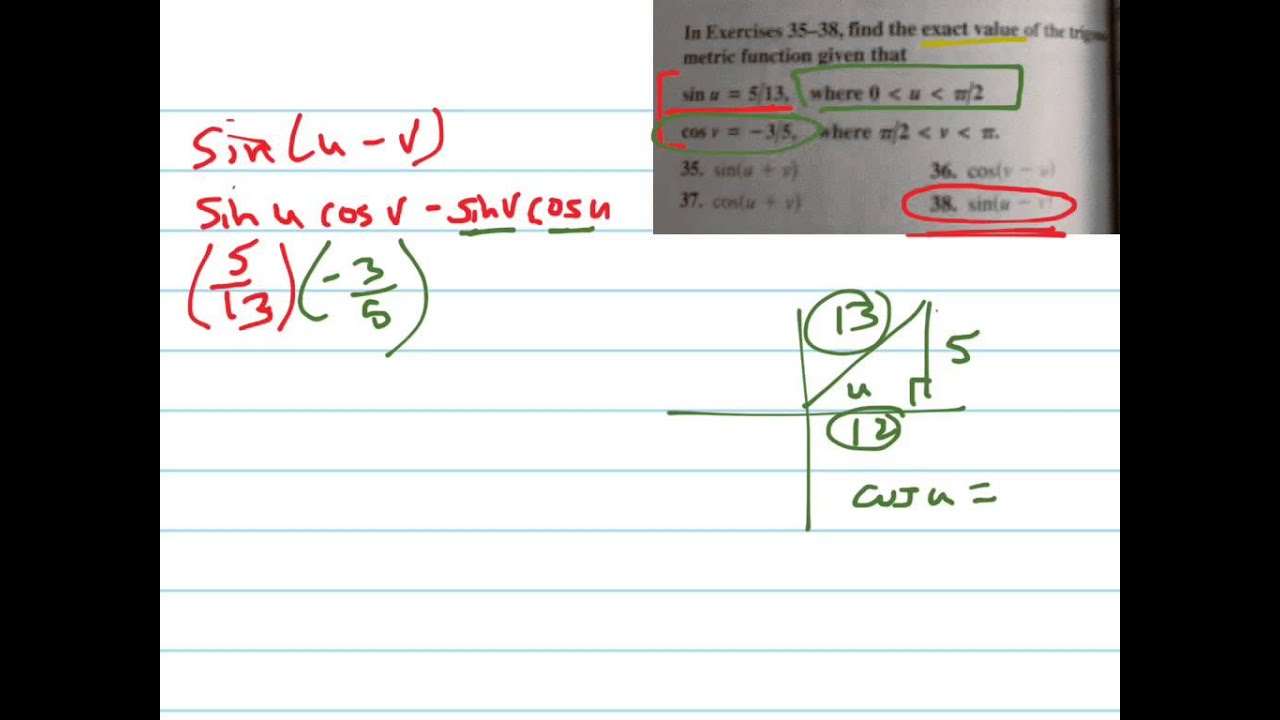 In Exercises 35–38, find the exact value of the
metric function given that
sin u = 5/13, where 0 < u < π/2
cos v = −3/5, where π/2 < v < π.
35. sin(u + v) 36. cos(v − u)
37. cos(u + v) 38. sin(u − v)
sin(u - v)
sin u cos v - sin v cos u
(5/13)(-3/5)
13
5
u
12
cos u =